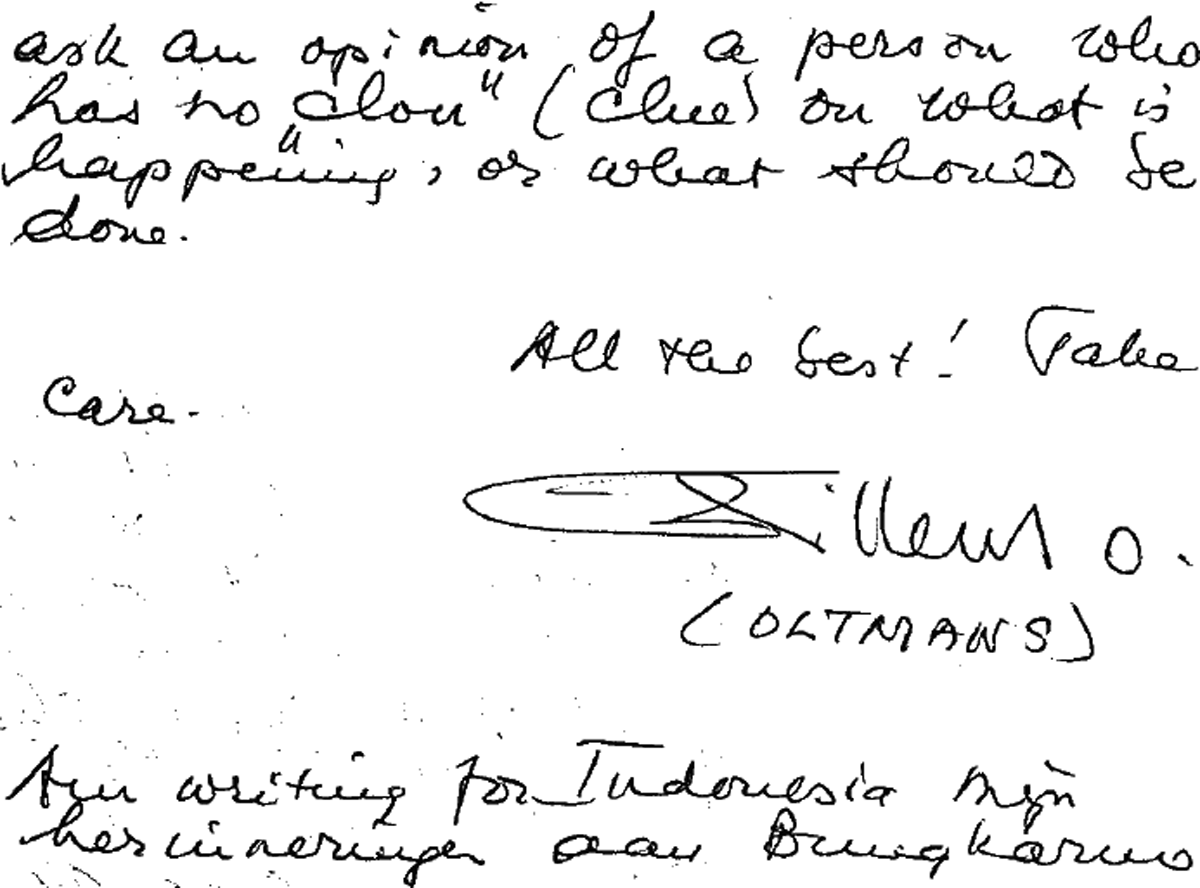 ask an opinion of a person who
has no "clou" (clue) on what is
happening, or what should be
done.
All the best! Take
Care.
Willem O.
(OLTMANS)
Am writing for Indonesia mijn
herinneringen aan Bung Karno